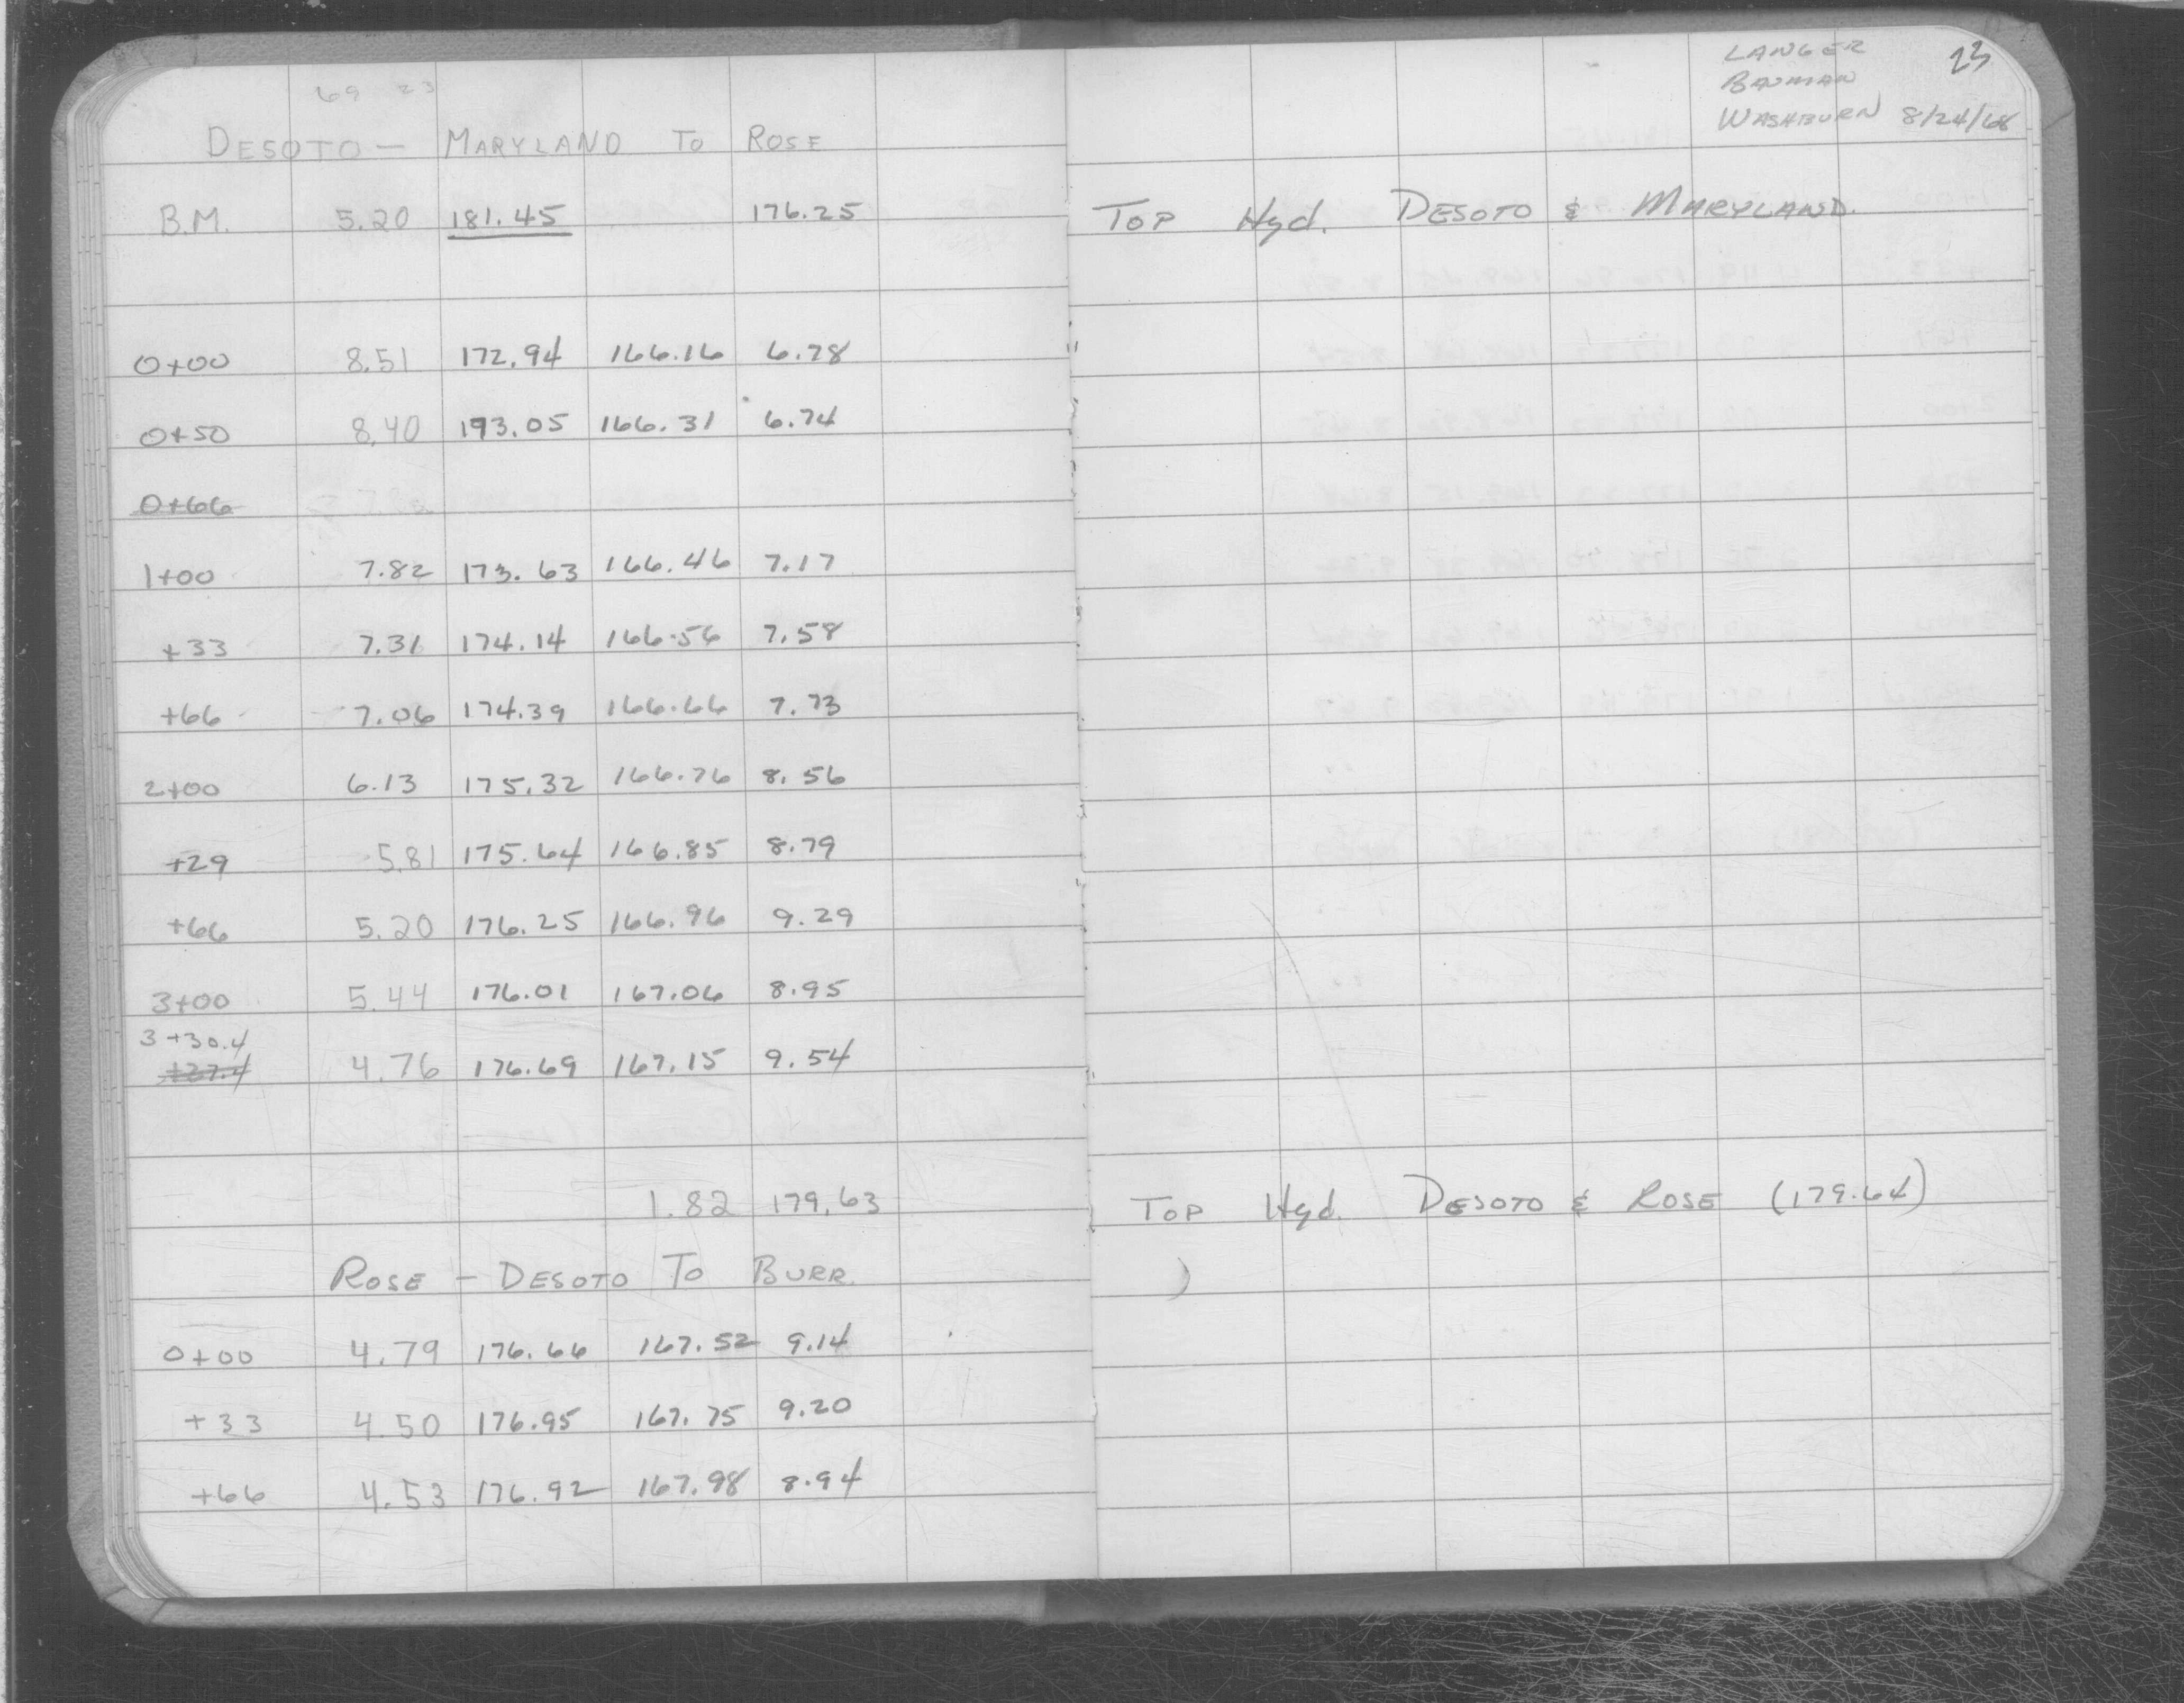 69 23
DESOTO - MARYLAND TO ROSE
B.M. 5.20 181.45 176.25
0+00 8.51 172.94 166.16 6.78
0+50 8.40 173.05 166.31 6.74
0+66
1+00 7.82 173.63 166.46 7.17
+33 7.31 174.14 166.56 7.58
+66 7.06 174.39 166.66 7.73
2+00 6.13 175.32 166.76 8.56
+29 5.81 175.64 166.85 8.79
+66 5.20 176.25 166.96 9.29
3+00 5.44 176.01 167.06 8.95
3+30.4
+27.4 4.76 176.69 167.15 9.54
1.82 179.63
ROSE - DESOTO TO BURR.
0+00 4.79 176.66 167.52 9.14
+33 4.50 176.95 167.75 9.20
+66 4.53 176.92 167.98 8.94
LANGER 23
BAUMAN
WASHBURN 8/24/68
TOP Hyd. DESOTO & MARYLAND.
TOP Hyd. DESOTO & ROSE (179.64)